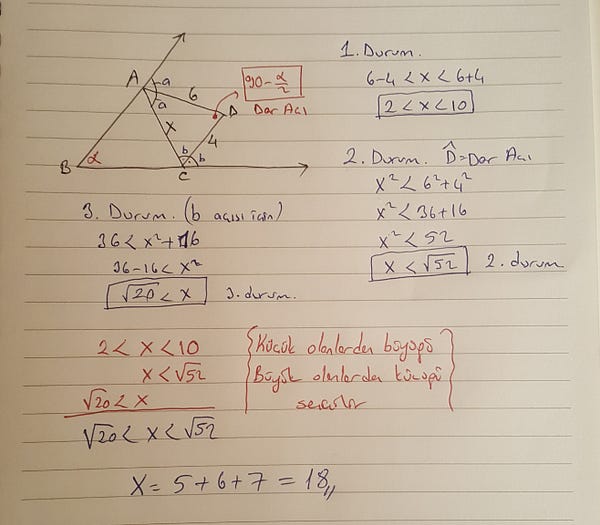 A
a
a
6
90-α/2
D
Dar Açı
x
4
b
b
B
α
C
1. Durum.
6-4 < x < 6+4
2 < x < 10
2. Durum. D̂=Dar Açı
x² < 6²+4²
x² < 36+16
x² < 52
x < √52 2. durum
3. Durum. (b açısı için)
36 < x²+16
36-16 < x²
√20 < x 3. durum.
2 < x < 10
x < √52
√20 < x
√20 < x < √52
{Küçük olanlardan büyüğü
Büyük olanlardan küçüğü
seçilir}
x = 5+6+7 = 18,,